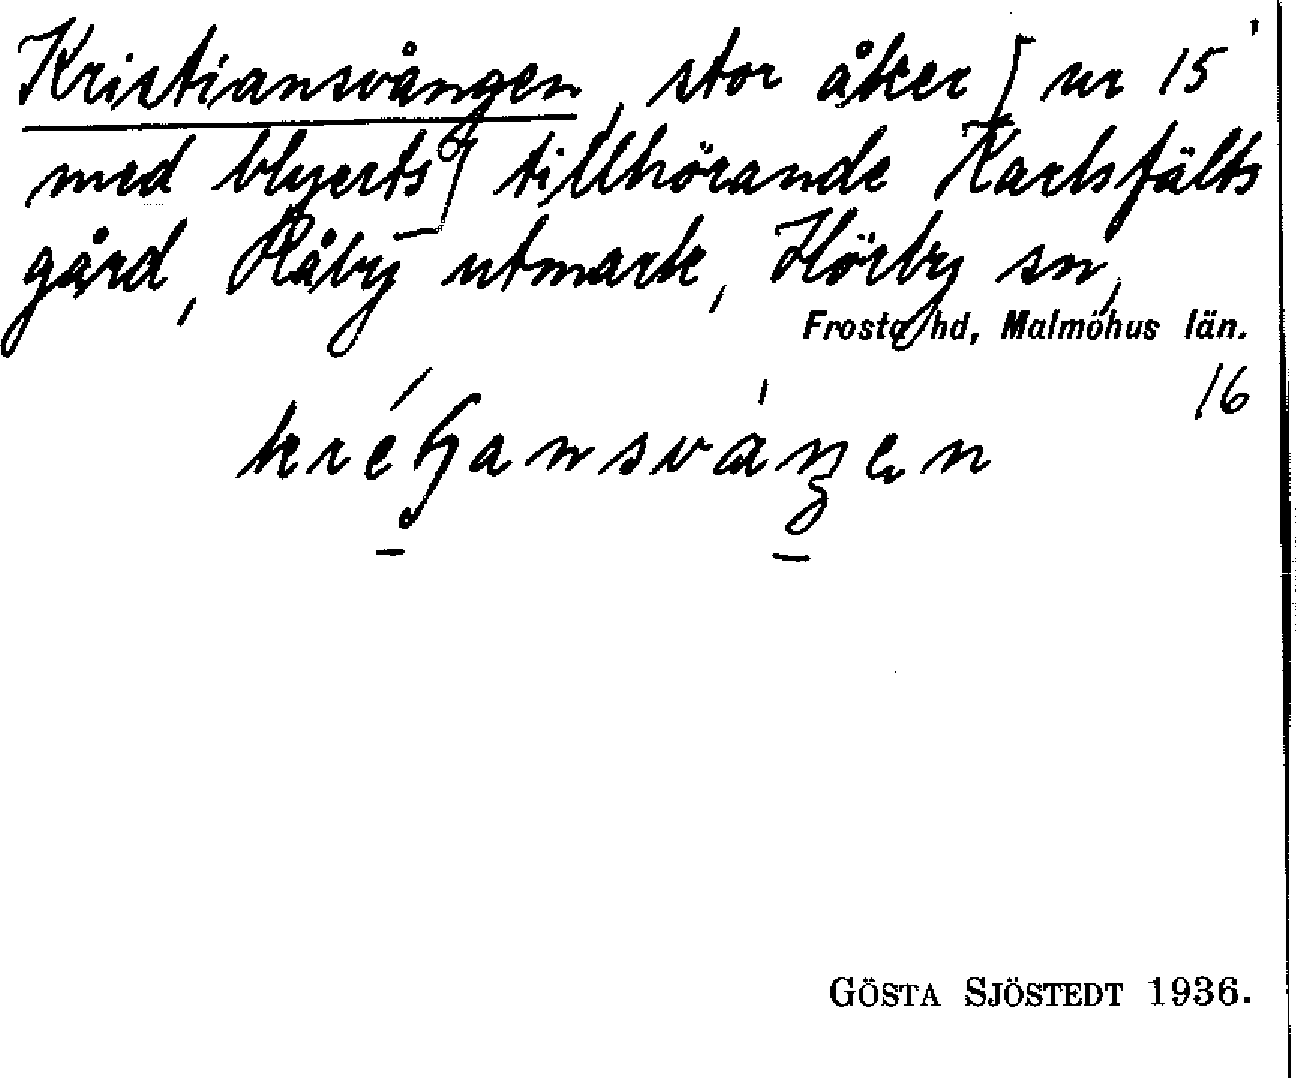 Kristiansvången, stor åker [nr 15
med blyerts] tillhörande Karlsfälts
gård, Råby utmark, Hörby sn,
Frosta hd, Malmöhus län.
16
GÖSTA SJÖSTEDT 1936.